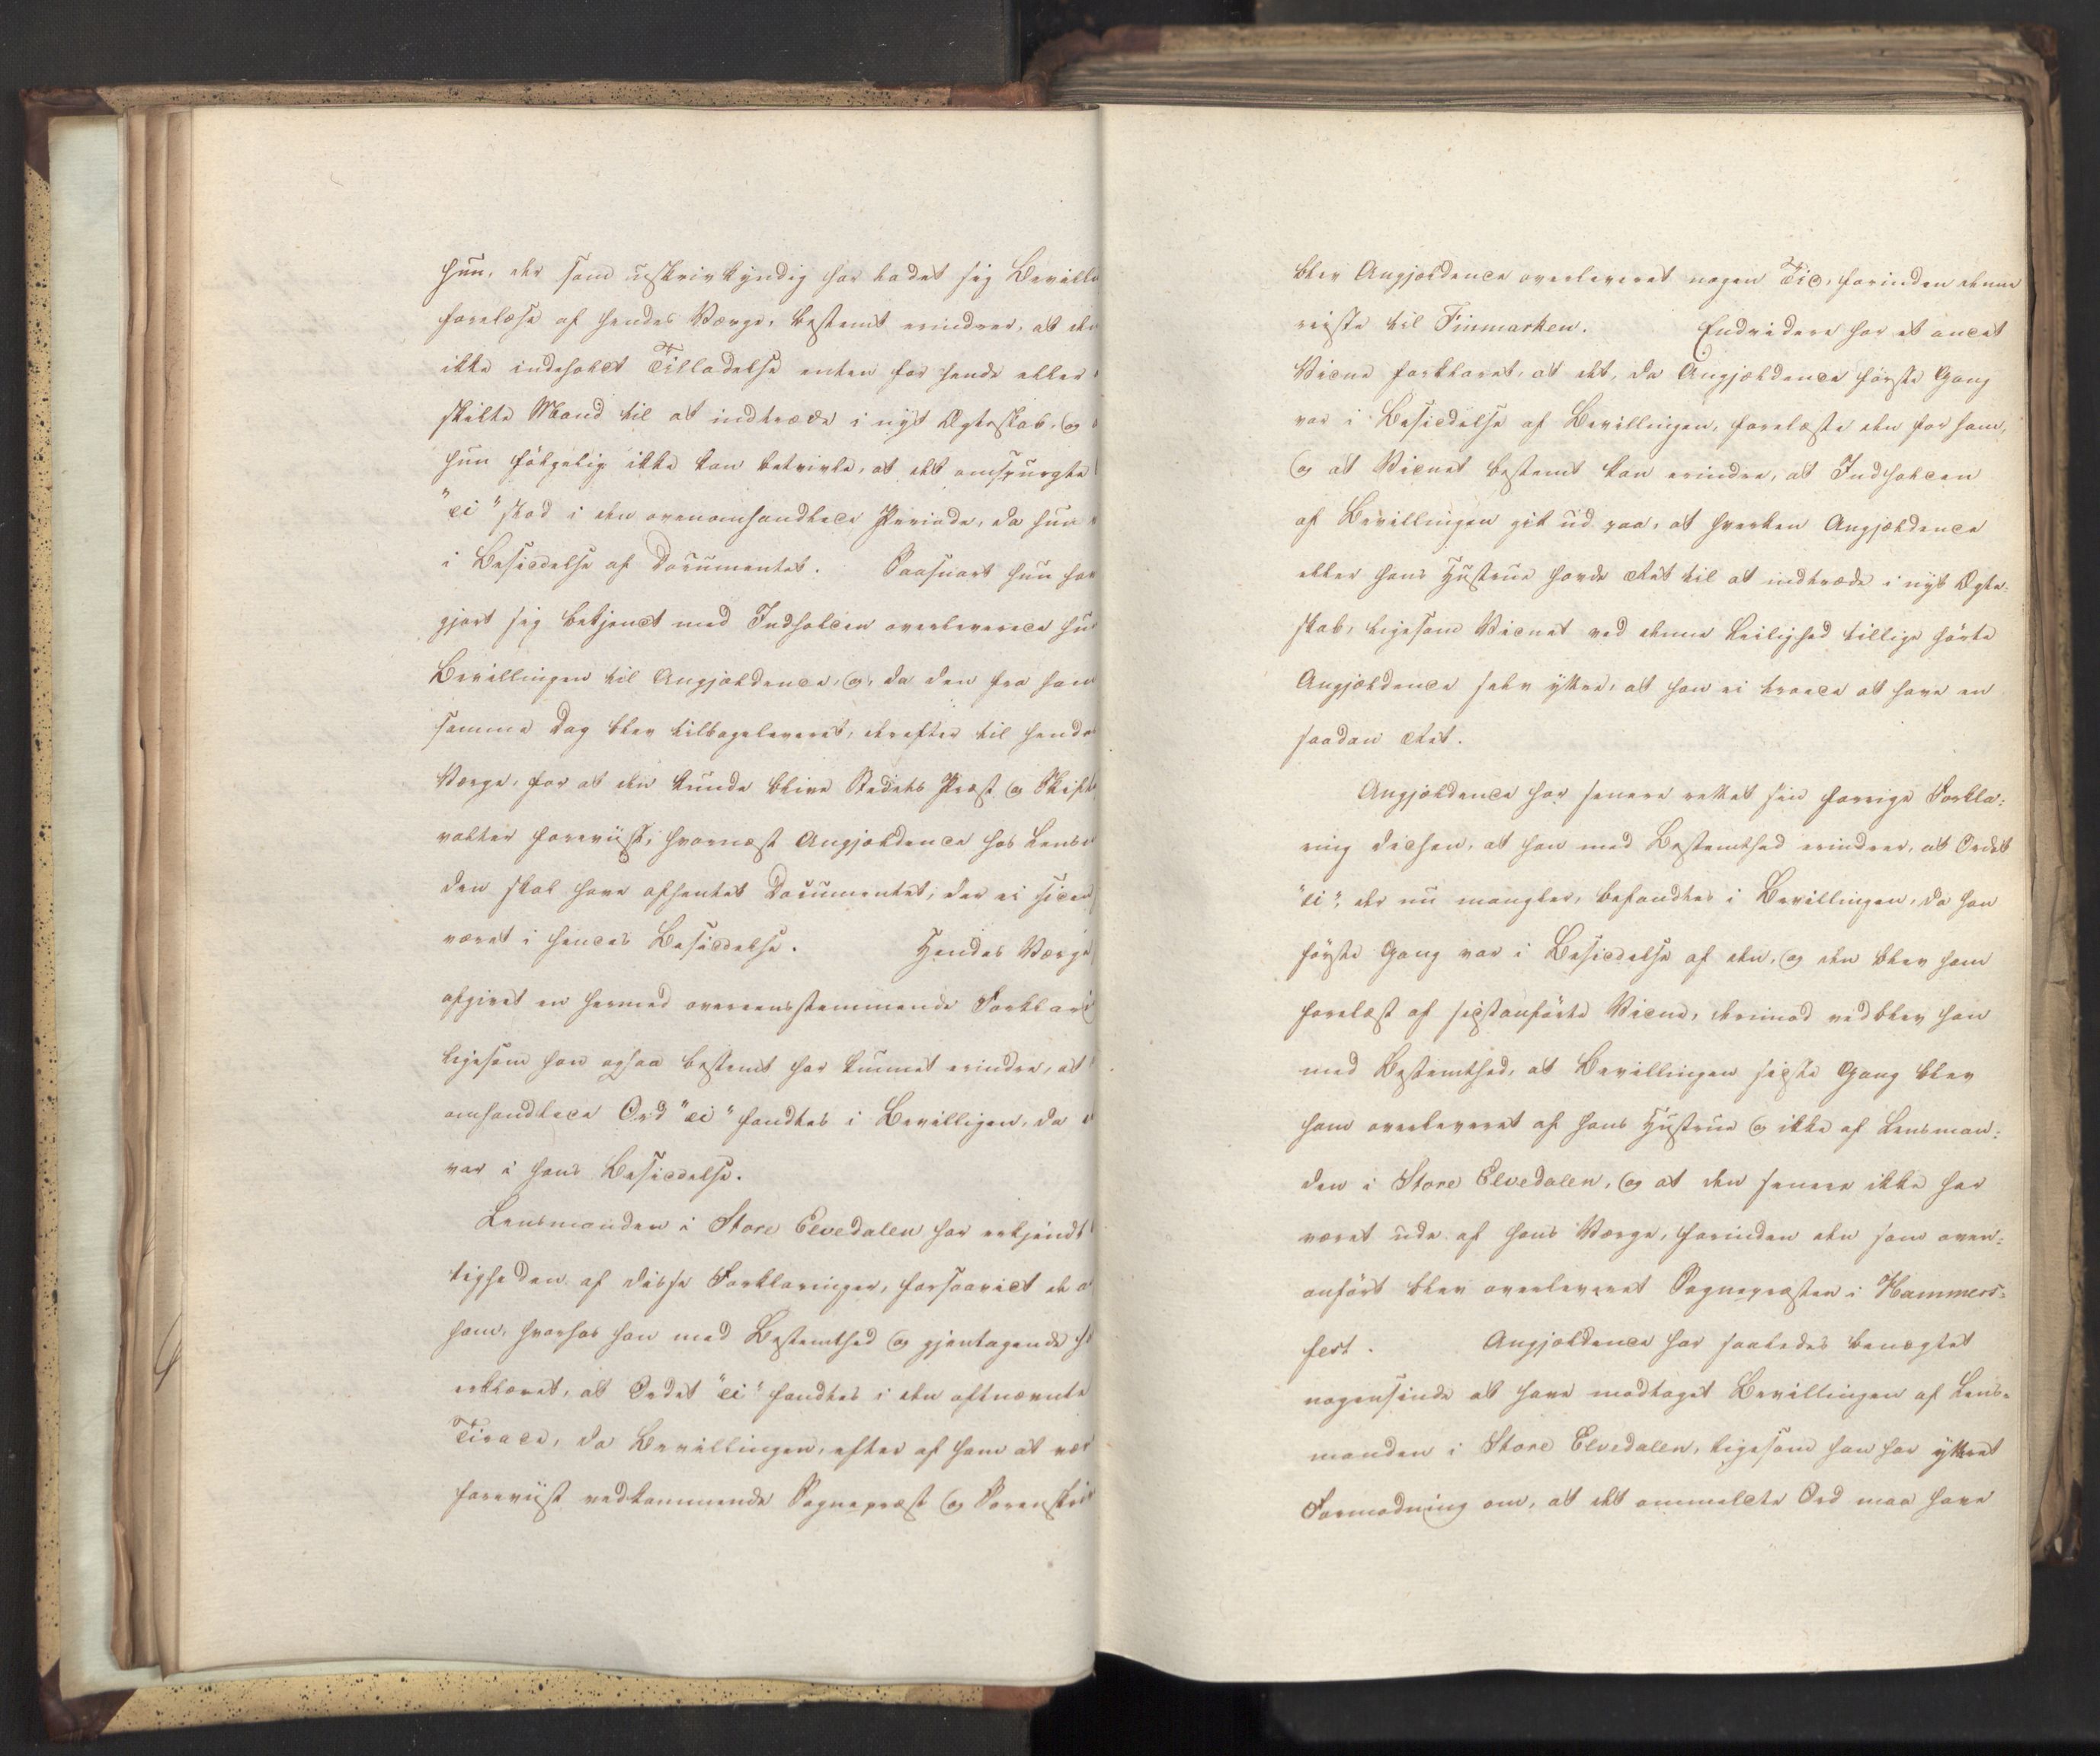 hun, der som uskrivkyndig har ladet sig Bevill
forelæse af hendes Værge, bestemt erindrer, at den
ikke indeholdt Tilladelse enten for hende eller
skilte Mand til at indtræde i nyt Ægteskab, og
hun fölgelig ikke kan betvivle, at det omspurgte
"ei" stod i den ovenomhandlede Periode, da hun
i Besiddelse af Documentet. Saasnart hun har
gjort sig bekjendt med Indholdet overleverede hun
Bevillingen til Angjældende, og, da den fra ham
samme Dag blev tilbageleveret, derefter til hendes
Værge, for at den kunde blive Stedets Præst og Skifte
valter foreviist, hvornæst Angjældende hos Lens
den skal have afhentet Documentet, der ei siden
været i hendes Besiddelse. Hendes Værge
afgivet en hermed overeensstemmende Forklari
ligesom han ogsaa bestemt har kunnet erindre, at
omhandlede Ord "ei" fandtes i Bevilligen, da
var i hans Besiddelse.
Lensmanden i Store Elvedalen har erkjendt
tigheden af disse Forklaringer, forsaavidt de a
ham, hvorhos han med Bestemthed og gjentagende h
erklæret, at Ordet "ei" fandtes i den oftnævnte
Tirade, da Bevillingen, efter af ham at vær
foreviist vedkommende Sognepræst og Sorenskri
blev Angjældende overleveret nogen Tid, forinden denne
reiste til Finmarken. Endvidere har et andet
Vidne forklaret, at det, da Angjældende förste Gang
var i Besiddelse af Bevillingen, forelæste den for ham,
og at Vidnet bestemt kan erindre, at Indholden
af Bevillingen gik ud paa, at hverken Angjældende
eller hans Hustrue havde Ret til at indtræde i nyt Ægte-
skab, ligesom Vidnet ved denne Leilighed tillige hörte
Angjældende selv yttre, at han ei troede at have en
saadan Ret.
Angjældende har senere rettet sin forrige Forkla-
ring derhen, at han med Bestemthed erindrer, at Ordet
"ei", der nu mangler, befandtes i Bevillingen, da han
förste Gang var i Besiddelse af den, og den blev ham
forelæst af sidstanförte Vidne, derimod vedblev han
med Bestemthed, at Bevillingen sidste Gang blev
ham overleveret af hans Hustrue og ikke af Lensman-
den i Store Elvedalen, og at den senere ikke har
været ude af hans Værge, forinden den som oven-
anfört blev overleveret Sognepræsten i Hammers-
fest. Angjældende har saaledes benægtet
nogensinde at have modtaget Bevillingen af Lens-
manden i Store Elvedalen, ligesom han har yttret
Formodning om, at det ommeldte Ord maa have